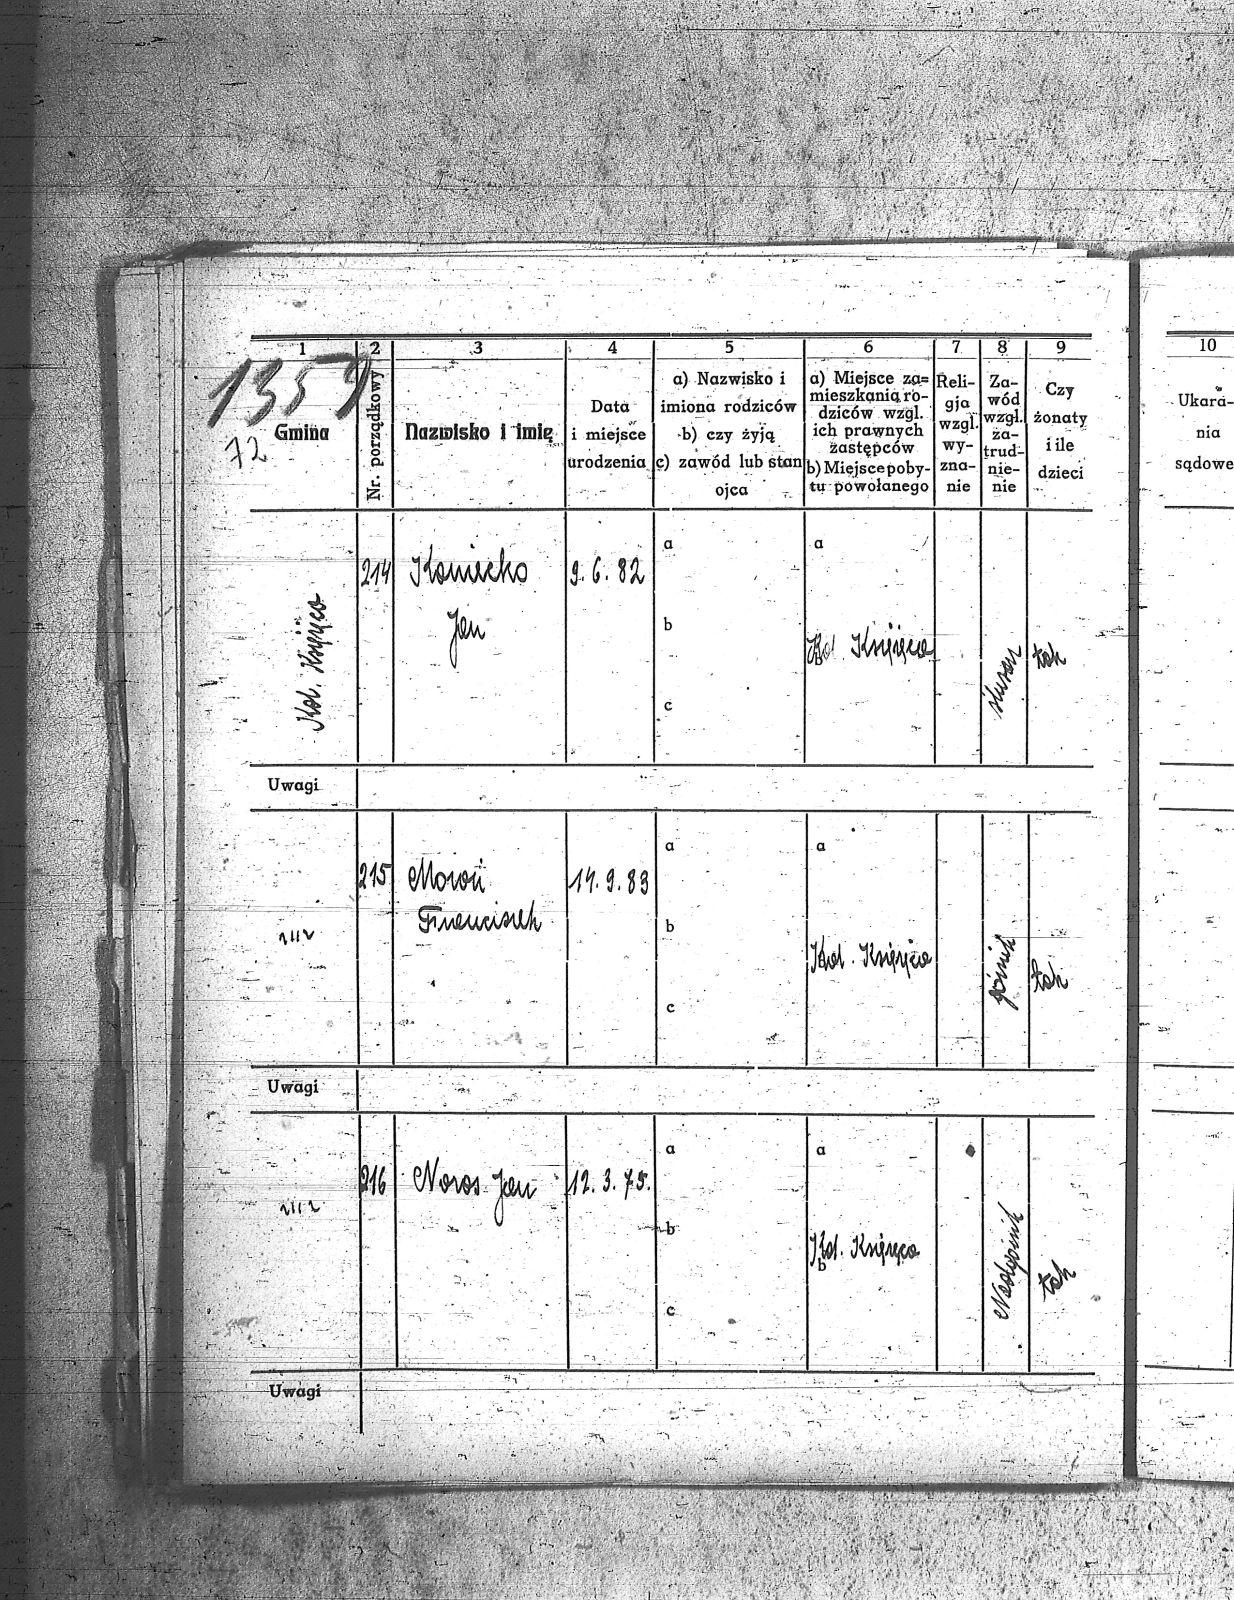 1 2 3 4 5 6 7 8 9 10
1359
72
Gmina
Nr. porządkowy
Nazwisko i imię
Data
i miejsce
urodzenia
a) Nazwisko i
imiona rodziców
b) czy żyją
c) zawód lub stan
ojca
a) Miejsce za=
mieszkania ro-
dziców wzgl.
ich prawnych
zastępców
b) Miejsce poby-
tu powołanego
Reli-
gja
wzgl.
wy-
zna-
nie
Za-
wód
wzgl.
za-
trud-
nie-
nie
Czy
żonaty
i ile
dzieci
Ukara-
nia
sądowe
Kol. Książęca
214
Koniecko
Jan
9. 6. 82
a
b
c
a
b
Kol Książęca
ślusarz
tak
Uwagi
215
Moroń
Franciszek
14. 9. 83
a
b
c
a
Kol. Książęca
górnik
tak
Uwagi
216
Noros Jan
12. 3. 75.
a
b
c
a
b
Kol. Książęca
Nadgórnik
tak
Uwagi